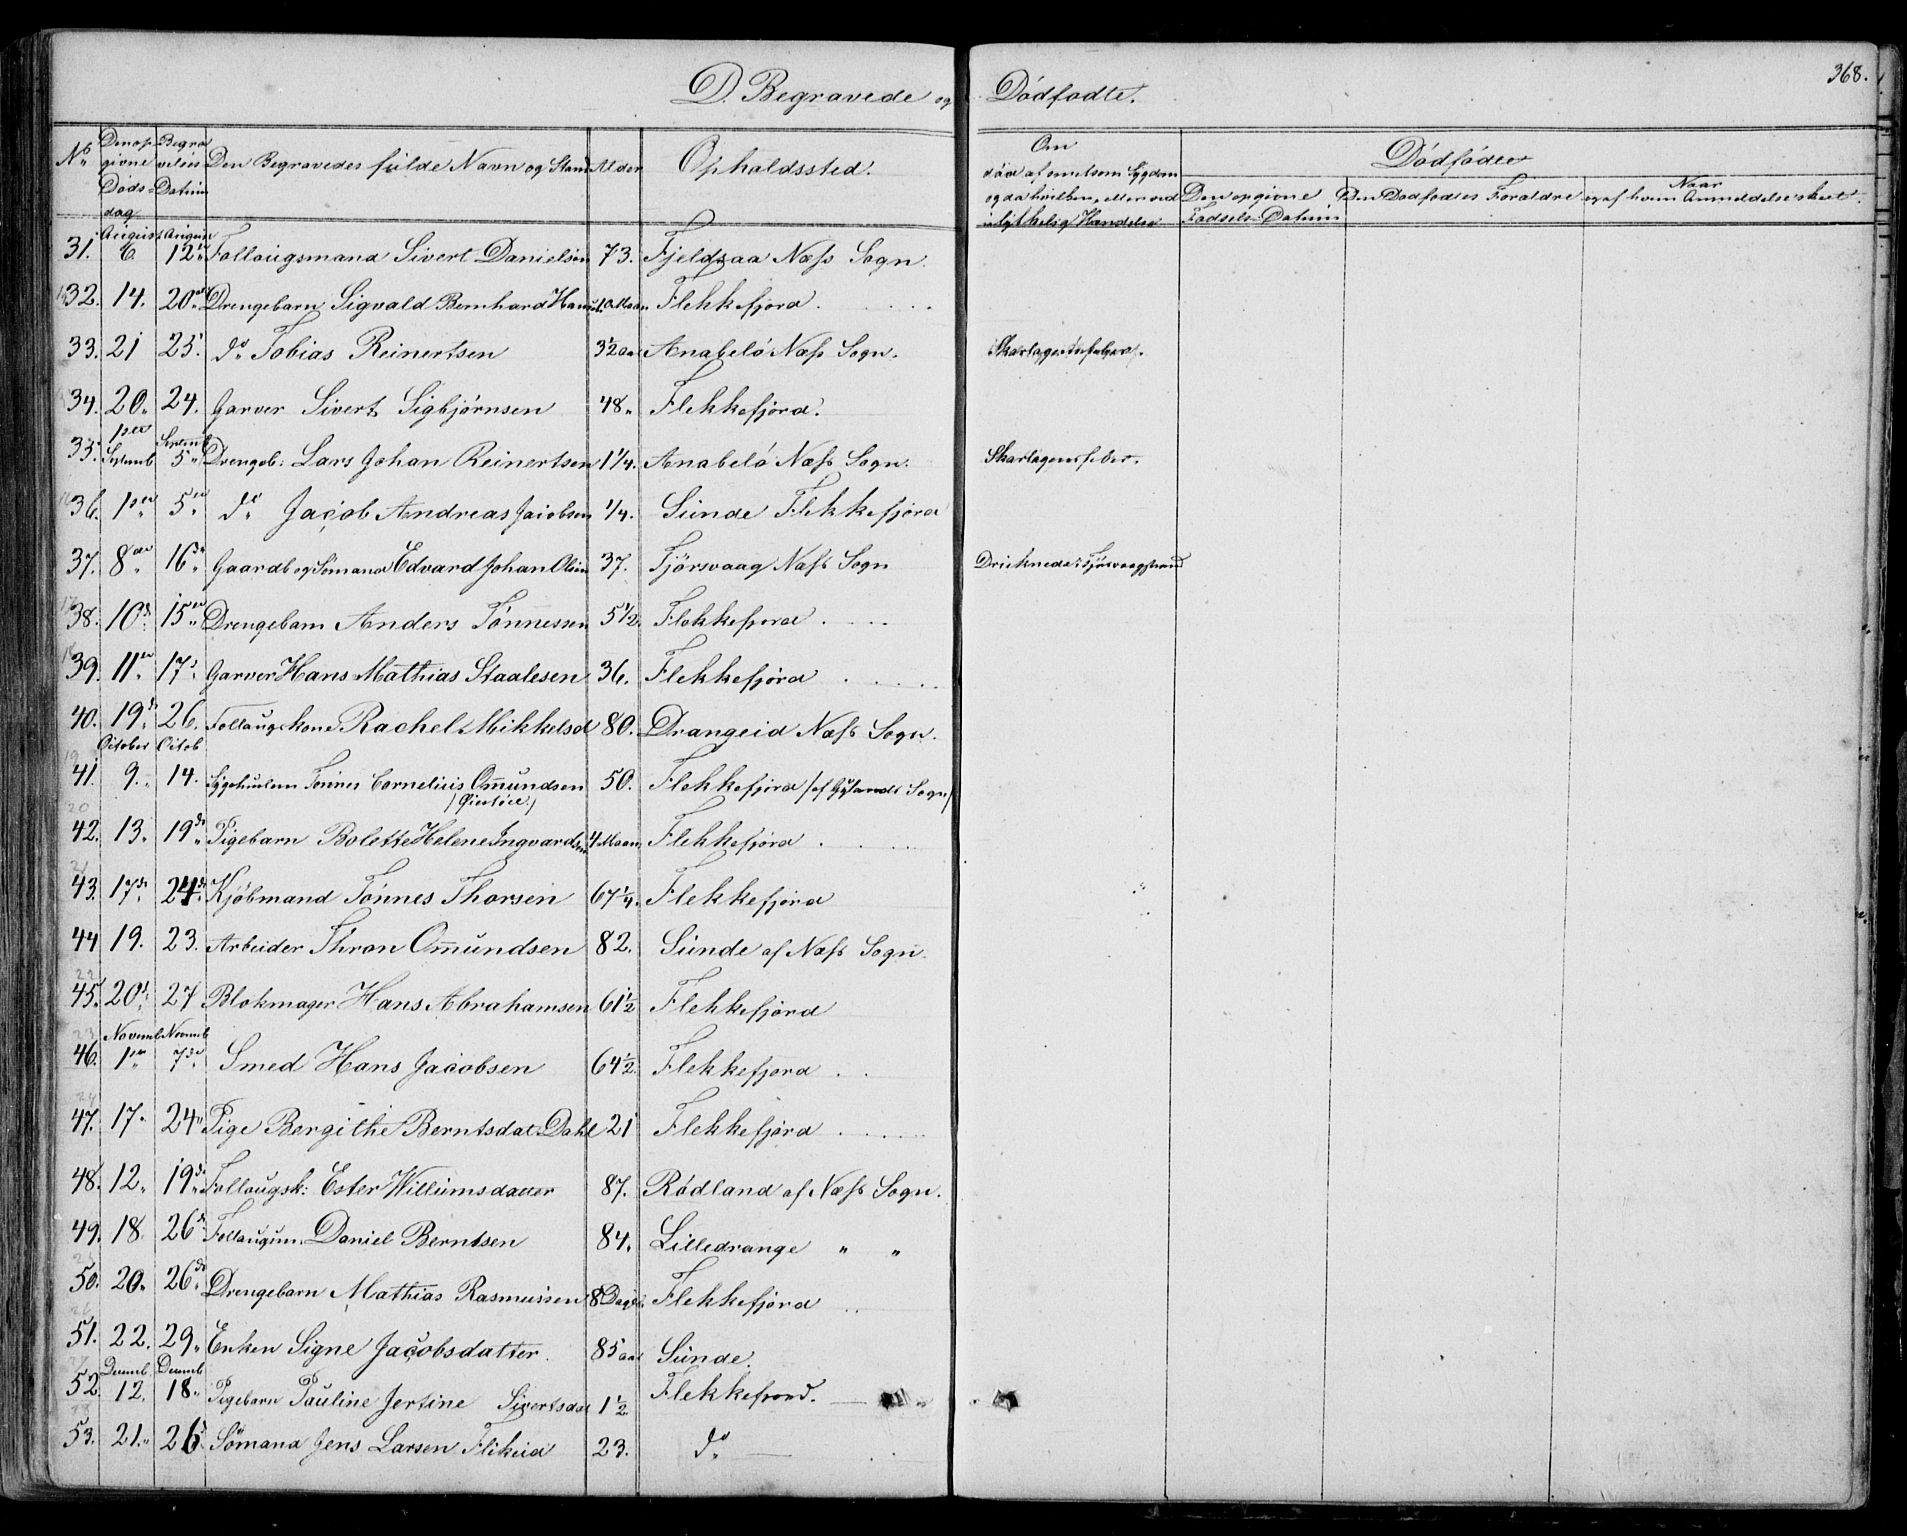 D. Begravede og Dödfödte.
368.
No Den opgivne Dödsdag Begravelses Datum Den Begravedes fulde Navn og Stand Alder Opholdssted. Om
Dödfödte
Den opgivne Fødsels-Datum Den Dødfødtes Forældre Naar og af hvem Anmeldelse skeet.
August August
31. 6. 12te Follaugsmand Sivert Danielsen 73. Fjeldsaa Næss Sogn.
32. 14. 20de Drengebarn Sigvald Bernhard 10 Maan Flekkefjord.
33. 21 25. do Tobias Reinertsen 3½ Anabelö Næss Sogn. Skarlagensfeber.
34. 20. 24. Garver Sivert Sigbjörnsen 48. Flekkefjörd.
35. 1ste Septemb Septemb 5. Drengeb: Lars Johan Reinertsen 1¼. Anabelö Næss Sogn. Skarlagensfeber.
36. 1ste 5te do Jacob Andreas Jacobsen ¼. Sunde Flekkefjörd
37. 8de 16de Gaardb og Sömand Edvard Johan Olsen 37. Tjörsvaag Næss Sogn
38. 10de 15de Drengebarn Anders Tönnessen 5½. Flekkefjord.
39. 11te 17de Garver Hans Mathias Staalesen 36. Flekkefjörd.
40. 19de 26. Follaugskone Rachel Mikkelsd 80. Drangeid Næss Sogn.
October Octob
41. 9. 14. Tönnes Cornelius Omundsen 50. Flekkefjörd
42. 13. 19de Pigebarn Bolette Helene Ingvardsen 4 Maan Flekkefjörd.
43. 17de 24de Kjöbmand Tönnes Thorsen 67¼. Flekkefjörd
44 19. 23. Arbeider Thron Omundsen 82. Sunde af Næss Sogn.
45. 20de 27 Blokmager Hans Abrahamsen 61½ Flekkefjörd
Novemb Novemb
46. 1ste 7de Smed Hans Jacobsen 64½. Flekkefjord.
47. 17. 24. Pige Bergithe Berntsdat. Dahl 21 Flekkefjörd.
48. 12. 19de Follaugsk: Ester Willumsdatter 87. Rödland af Næss Sogn.
49. 18. 26de Follaugsm. Daniel Berntsen 84. Lilledrange " "
50. 20. 26de Drengebarn Mathias Rasmussen 8 Dage Flekkefjörd
51. 22. 29. Enken Signe Jacobsdatter. 85 aar Sunde.
Decemb Decemb
52. 12. 18. Pigebarn Pauline Jertine Sivertsdat 1½. Flekkefjord.
53. 21. 26. Sömand Jens Larsen Flikeid 23. do